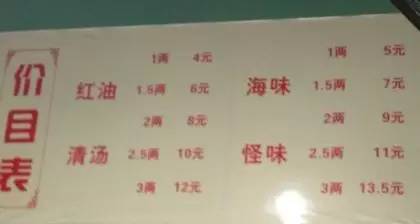 价目表
1两 4元
红油 1.5两 6元
2两 8元
清汤 2.5两 10元
3两 12元
1两 5元
海味 1.5两 7元
2两 9元
怪味 2.5两 11元
3两 13.5元